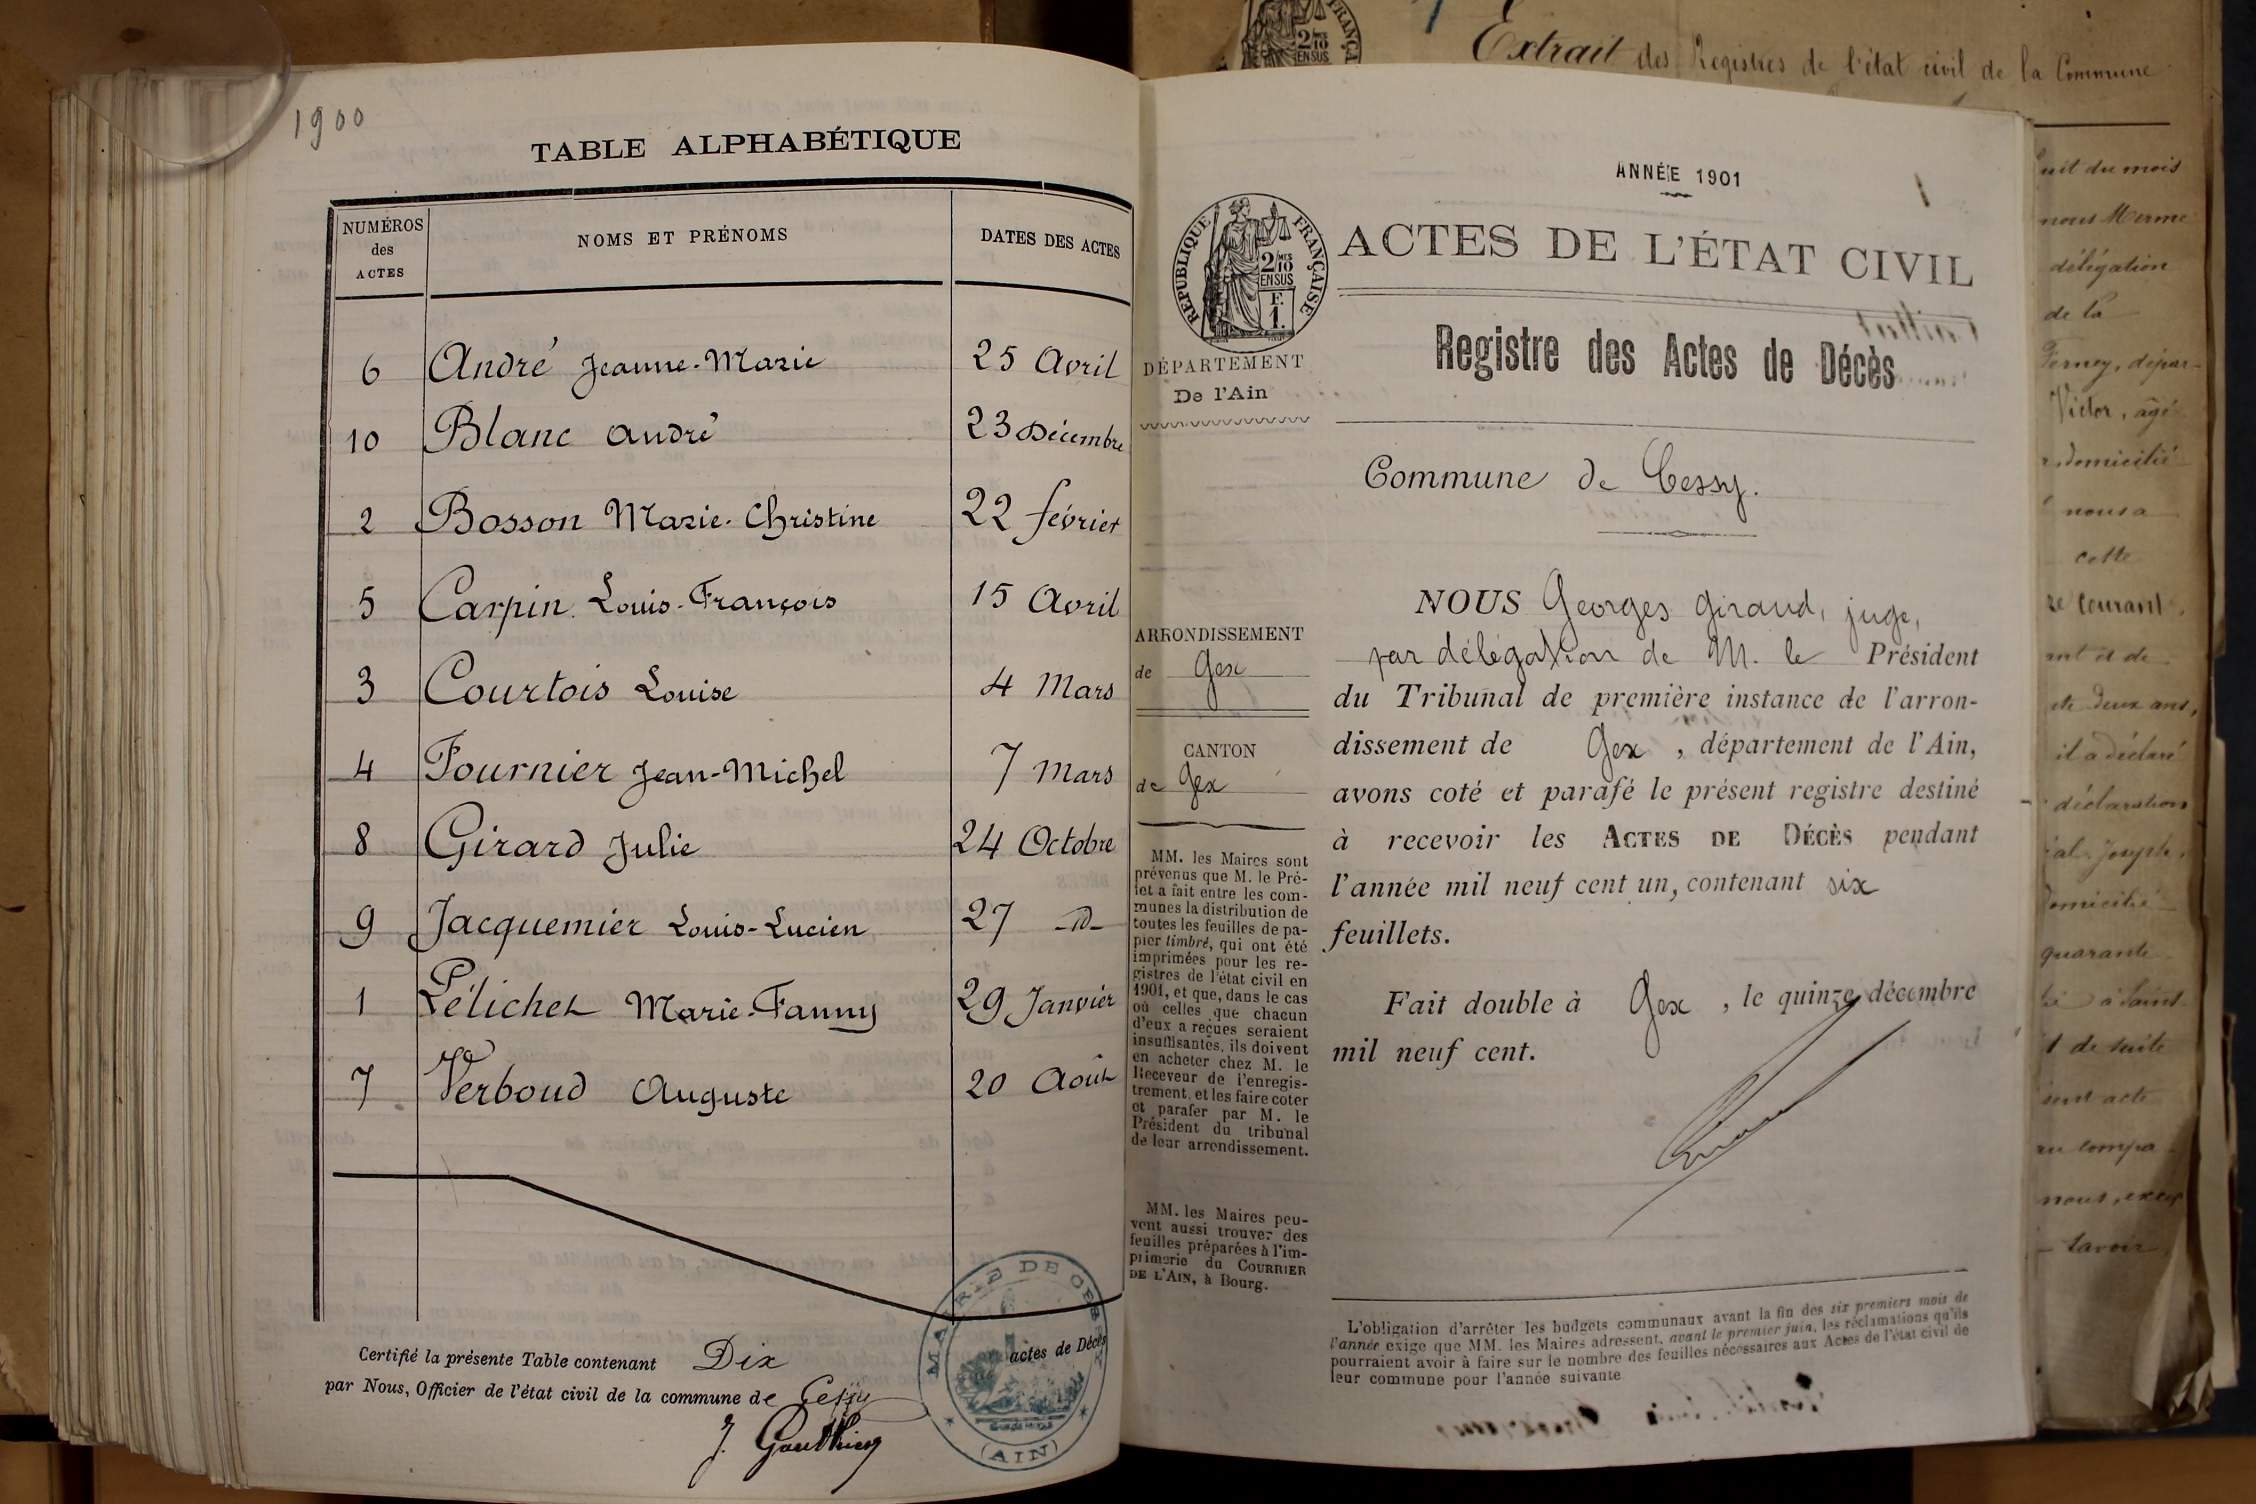 1900
TABLE ALPHABÉTIQUE
NUMÉROS des ACTES NOMS ET PRÉNOMS DATES DES ACTES
6 André Jeanne-Marie 25 Avril
10 Blanc André 23 Décembre
2 Bosson Marie-Christine 22 février
5 Carpin Louis-François 15 Avril
3 Courtois Louise 4 Mars
4 Fournier Jean-Michel 7 Mars
8 Girard Julie 24 Octobre
9 Jacquemier Louis-Lucien 27 -d-
1 Pélichet Marie-Fanny 29 Janvier
7 Verboud Auguste 20 Août
Certifié la présente Table contenant Dix actes de Décès
par Nous, Officier de l'état civil de la commune de Cessy
J. Gauthier
MAIRIE DE CESSY
(AIN)
ANNÉE 1901
1
RÉPUBLIQUE FRANÇAISE
2/10 MES
EN SUS
F.
1.
DÉPARTEMENT
De l'Ain
ARRONDISSEMENT
de Gex
CANTON
de Gex
MM. les Maires sont
prévenus que M. le Pré-
fet a fait entre les com-
munes la distribution de
toutes les feuilles de pa-
pier timbré, qui ont été
imprimées pour les re-
gistres de l'état civil en
1901, et que, dans le cas
où celles que chacun
d'eux a reçues seraient
insuffisantes, ils doivent
en acheter chez M. le
Receveur de l'enregis-
trement, et les faire coter
et parafer par M. le
Président du tribunal
de leur arrondissement.
MM. les Maires peu-
vent aussi trouver des
feuilles préparées à l'im-
primerie du COURRIER
DE L'AIN, à Bourg.
ACTES DE L'ÉTAT CIVIL
Registre des Actes de Décès
Commune de Cessy.
NOUS Georges Giraud, juge,
par délégation de M. le Président
du Tribunal de première instance de l'arron-
dissement de Gex, département de l'Ain,
avons coté et parafé le présent registre destiné
à recevoir les ACTES DE DÉCÈS pendant
l'année mil neuf cent un, contenant six
feuillets.
Fait double à Gex, le quinze décembre
mil neuf cent.
L'obligation d'arrêter les budgets communaux avant la fin des six premiers mois de
l'année exige que MM. les Maires adressent, avant le premier juin, les réclamations qu'ils
pourraient avoir à faire sur le nombre des feuilles nécessaires aux Actes de l'état civil de
leur commune pour l'année suivante
Extrait des Registres de l'état civil de la Commune
2/10 MES
EN SUS
FRANÇA
uit du mois
nous Merme
délégation
de la
Ferney, dépar-
Victor, âgé
domicilié
nous a
cette
courant,
et de
deux ans,
il a déclaré
déclaration
Joseph,
domicilié
quarante
à Saint
de suite
acte
compa
nous,
savoir